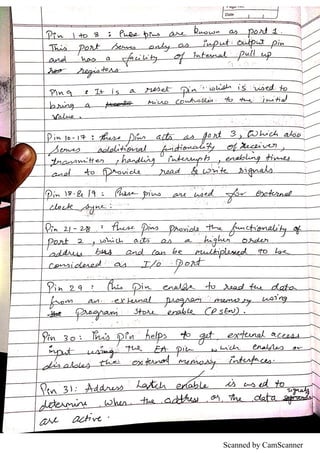 Page No.
Date
Pin 1 to 8 : These pins are known as port 1.
This port serves only as input output pin
and has a facility of internal pull up
registers
Pin 9 : It is a reset pin which is used to
bring a micro controller to the initial
value.
Pin 10-17 : These pins acts as port 3, which also
serves additional funtionality of receiver,
transmitter, handling interrupts, enabling times
and to provide read & write signals
Pin 18 & 19 : These pins are used for External
clock sync.
Pin 21-28 : These pins provide the functionality of
Port 2, which acts as a higher order
address bus and can be multiplexed to be
considered as I/O port
Pin 29 : This pin enable to read the data
from an external program memory using
Program Store enable (PSEN).
Pin 30 : This pin helps to get external access
input using the EA pin which enables or
disables the external memory interfaces.
Pin 31: Address Latch enable is used to
determine when the address or the data signals
are active.
Scanned by CamScanner